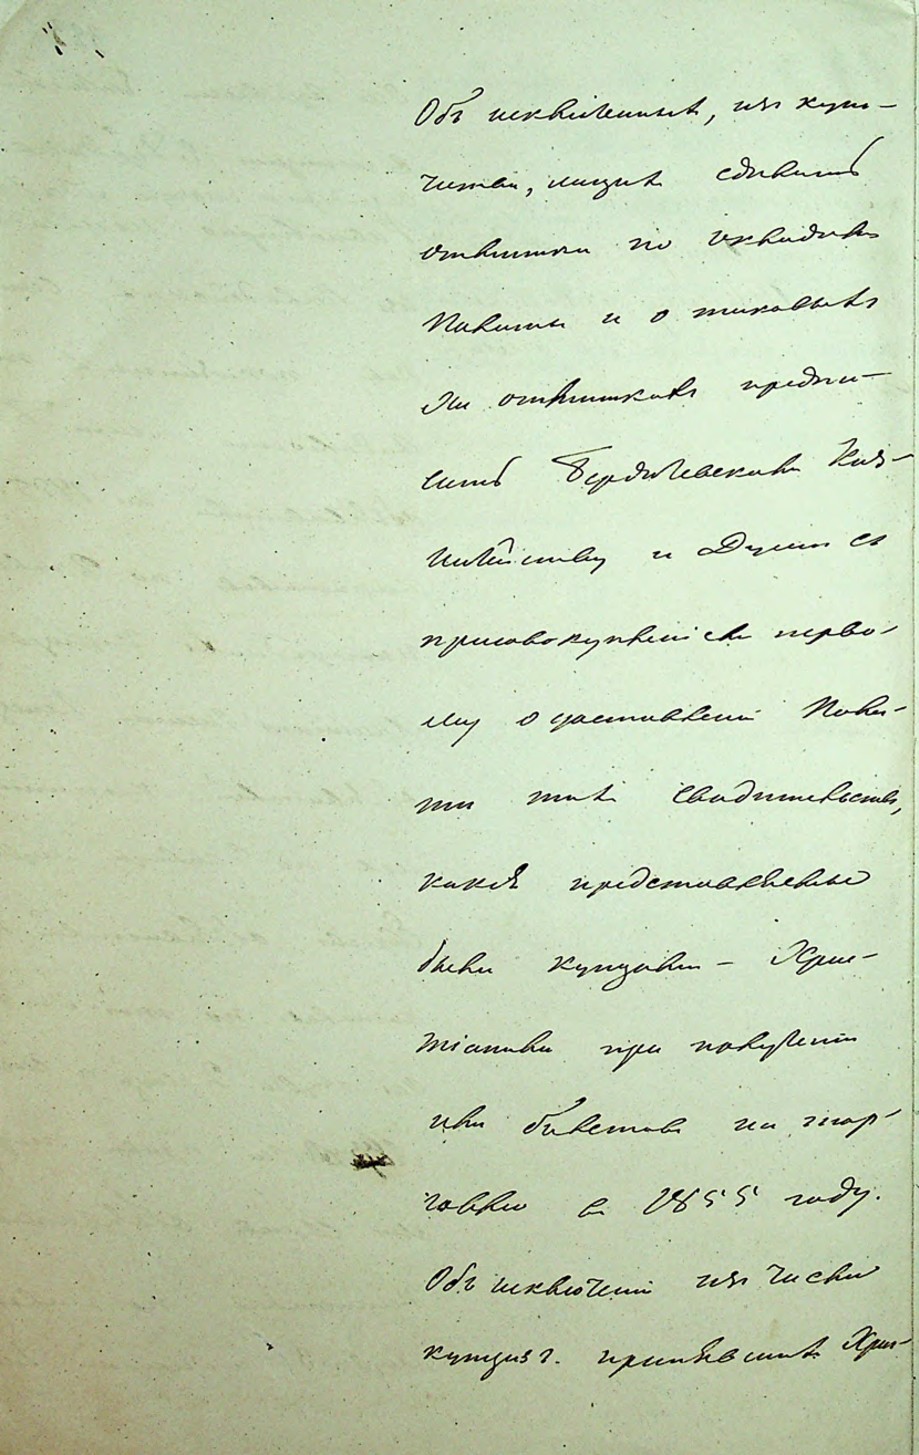 Объ исключенныхъ, изъ купе-
чества, лицахъ сдѣлать
отмѣтки по окладамъ
Палаты и о таковыхъ
же отмѣткахъ предпи-
сать Бердичевскому Каз-
начейству и Думѣ съ
присовокупленіемъ перво-
му о доставленіи Пала-
тѣ тѣхъ свидѣтельствъ,
какія представлены
были купцами - Хрис-
тіанами при полученіи
ими билетовъ на тор-
говлю въ 1855 году.
Объ исключеніи изъ числа
купцовъ принявшихъ Хрис-